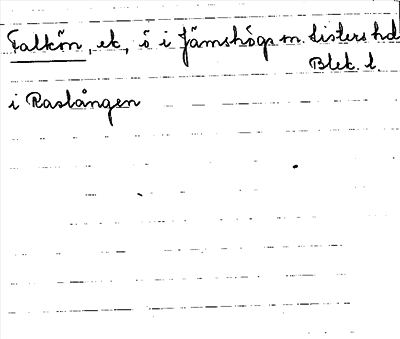 Falkön, ek, ö i Jämshögs sn. Listers hd
Blek. l.
i Raslången